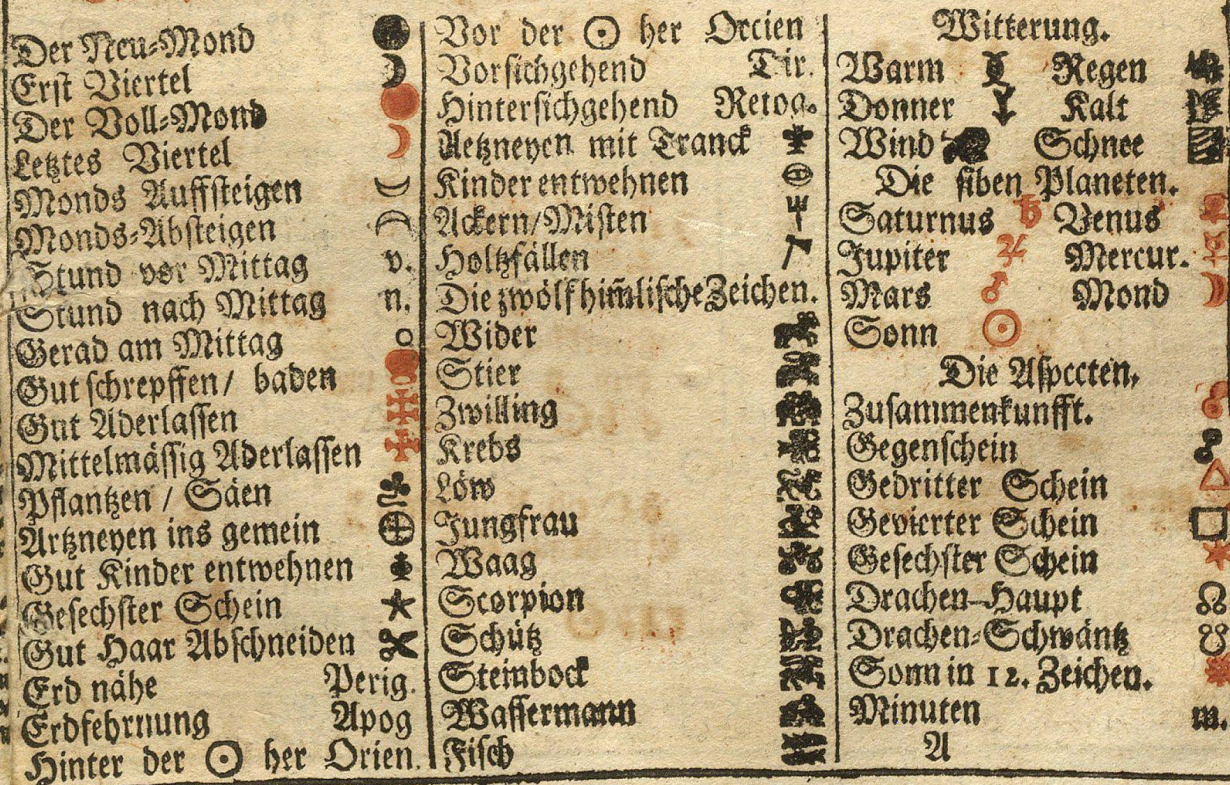 Der Neu-Mond
Erst Viertel
Der Voll-Mond
Letztes Viertel
Monds Auffsteigen
Monds-Absteigen
Stund vor Mittag v.
Stund nach Mittag n.
Gerad am Mittag
Gut schrepffen / baden
Gnt Aderlassen
Mittelmässig Aderlassen
Pflantzen / Säen
Artzneyen ins gemein
Gut Kinder entwehnen
Gesechster Schein
Gut Haar Abschneiden
Erd nähe Perig.
Erdfehrnung Apog
Hinter der ☉ her Orien.
Vor der ☉ her Orcien
Vorsichgehend Dir.
Hintersichgehend Retog.
Aetzneyen mit Tranck
Kinder entwehnen
Ackern/Misten
Holtzfällen
Die zwölf him̃lische Zeichen.
Wider
Stier
Zwilling
Krebs
Löw
Jungfrau
Waag
Scorpion
Schütz
Steinbock
Wassermann
Fisch
Witterung.
Warm Regen
Donner Kalt
Wind Schnee
Die siben Planeten.
Saturnus ♄ Venus ♀
Jupiter ♃ Mercur. ☿
Mars ♂ Mond ☽
Sonn ☉
Die Aspecten,
Zusammenkunfft. ☌
Gegenschein ☍
Gedritter Schein △
Gevierter Schein □
Gesechster Schein ✶
Drachen-Haupt ☊
Drachen-Schwäntz ☋
Sonn in 12. Zeichen.
Minuten m.
A